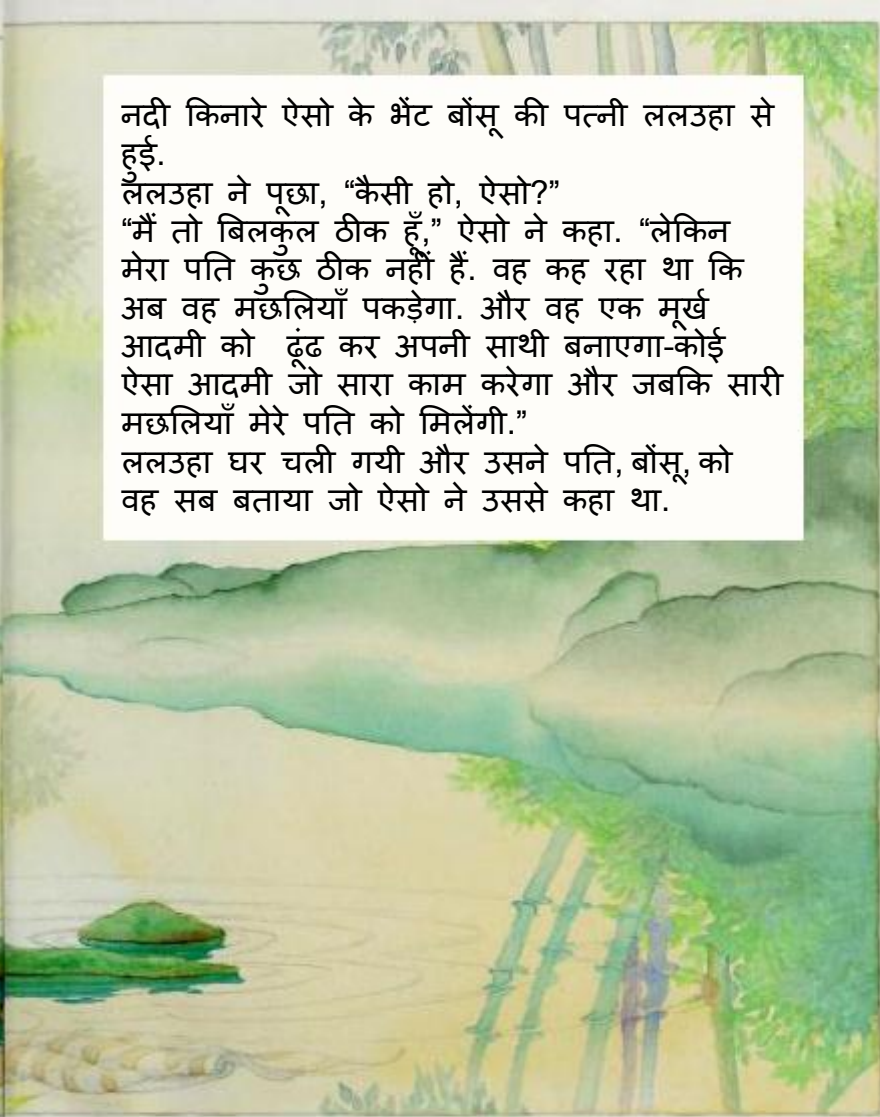 नदी किनारे ऐसो के भेंट बोंसू की पत्नी ललउहा से
हुई.
ललउहा ने पूछा, “कैसी हो, ऐसो?”
“मैं तो बिलकुल ठीक हूँ,” ऐसो ने कहा. “लेकिन
मेरा पति कुछ ठीक नहीं हैं. वह कह रहा था कि
अब वह मछलियाँ पकड़ेगा. और वह एक मूर्ख
आदमी को ढूंढ कर अपनी साथी बनाएगा-कोई
ऐसा आदमी जो सारा काम करेगा और जबकि सारी
मछलियाँ मेरे पति को मिलेंगी.”
ललउहा घर चली गयी और उसने पति, बोंसू, को
वह सब बताया जो ऐसो ने उससे कहा था.